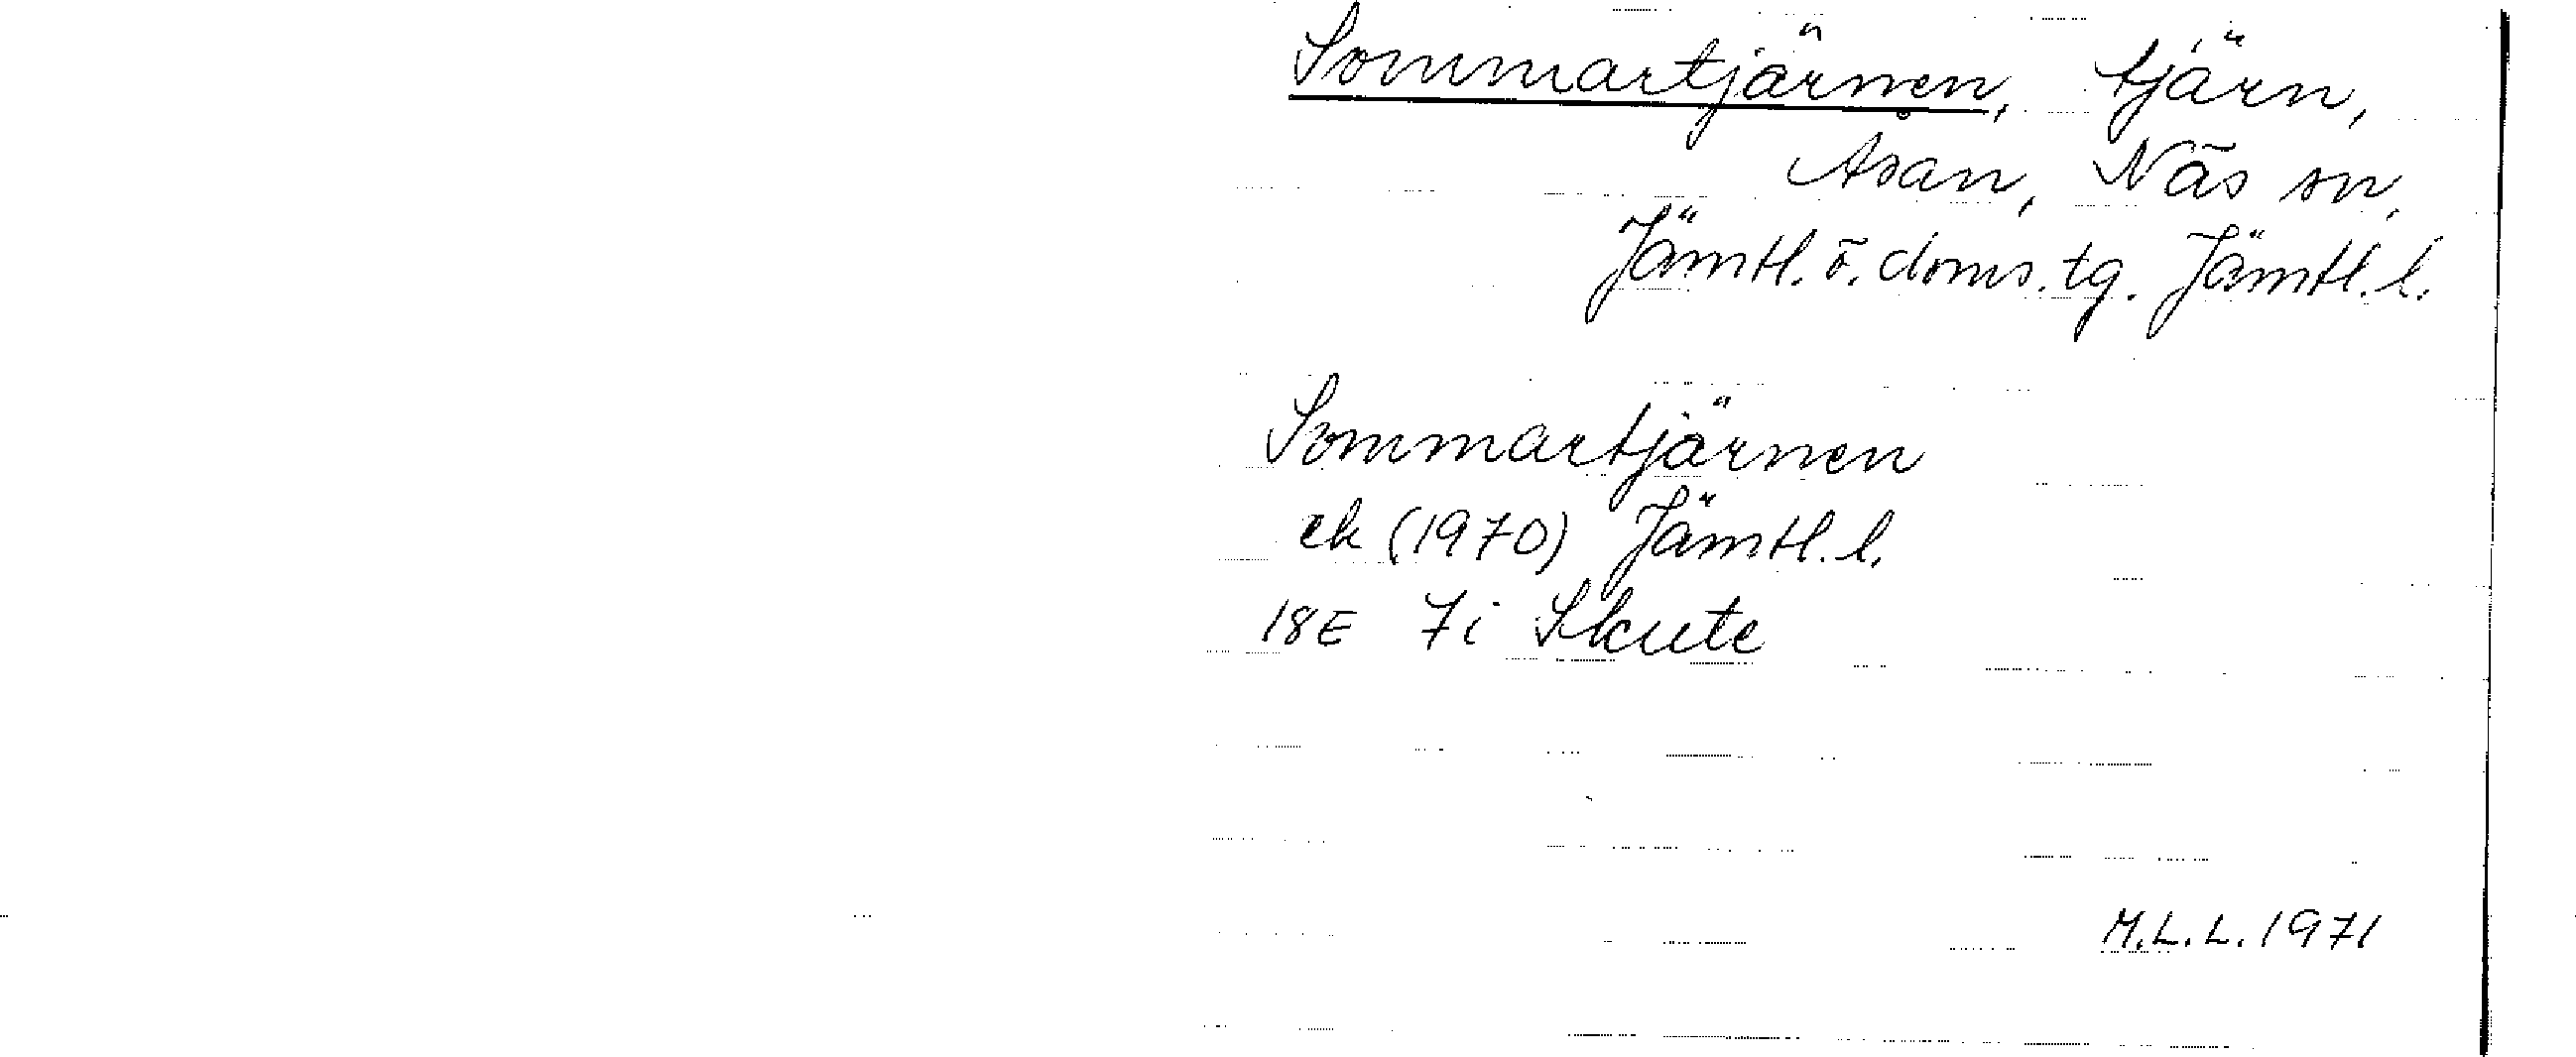 Sommartjärnen, tjärn,
Åsan, Näs sn,
Jämtl. ö. doms. tg. Jämtl. l.
Sommartjärnen
ek (1970) Jämtl. l.
18E 7i Skute
M.L.L. 1971